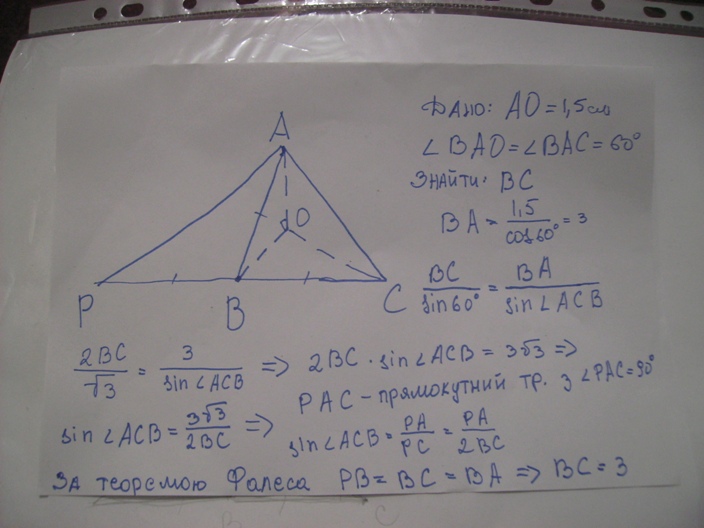 A
O
P
B
C
ДАНО: AO = 1,5 см
∠BAO = ∠BAC = 60°
ЗНАЙТИ: BC
BA = 1,5/cos60° = 3
BC/sin60° = BA/sin∠ACB
2BC/√3 = 3/sin∠ACB => 2BC · sin∠ACB = 3√3 =>
PAC – прямокутний тр. з ∠PAC=90°
sin∠ACB = 3√3/2BC => sin∠ACB = PA/PC = PA/2BC
ЗА теоремою Фалеса PB = BC = BA => BC = 3